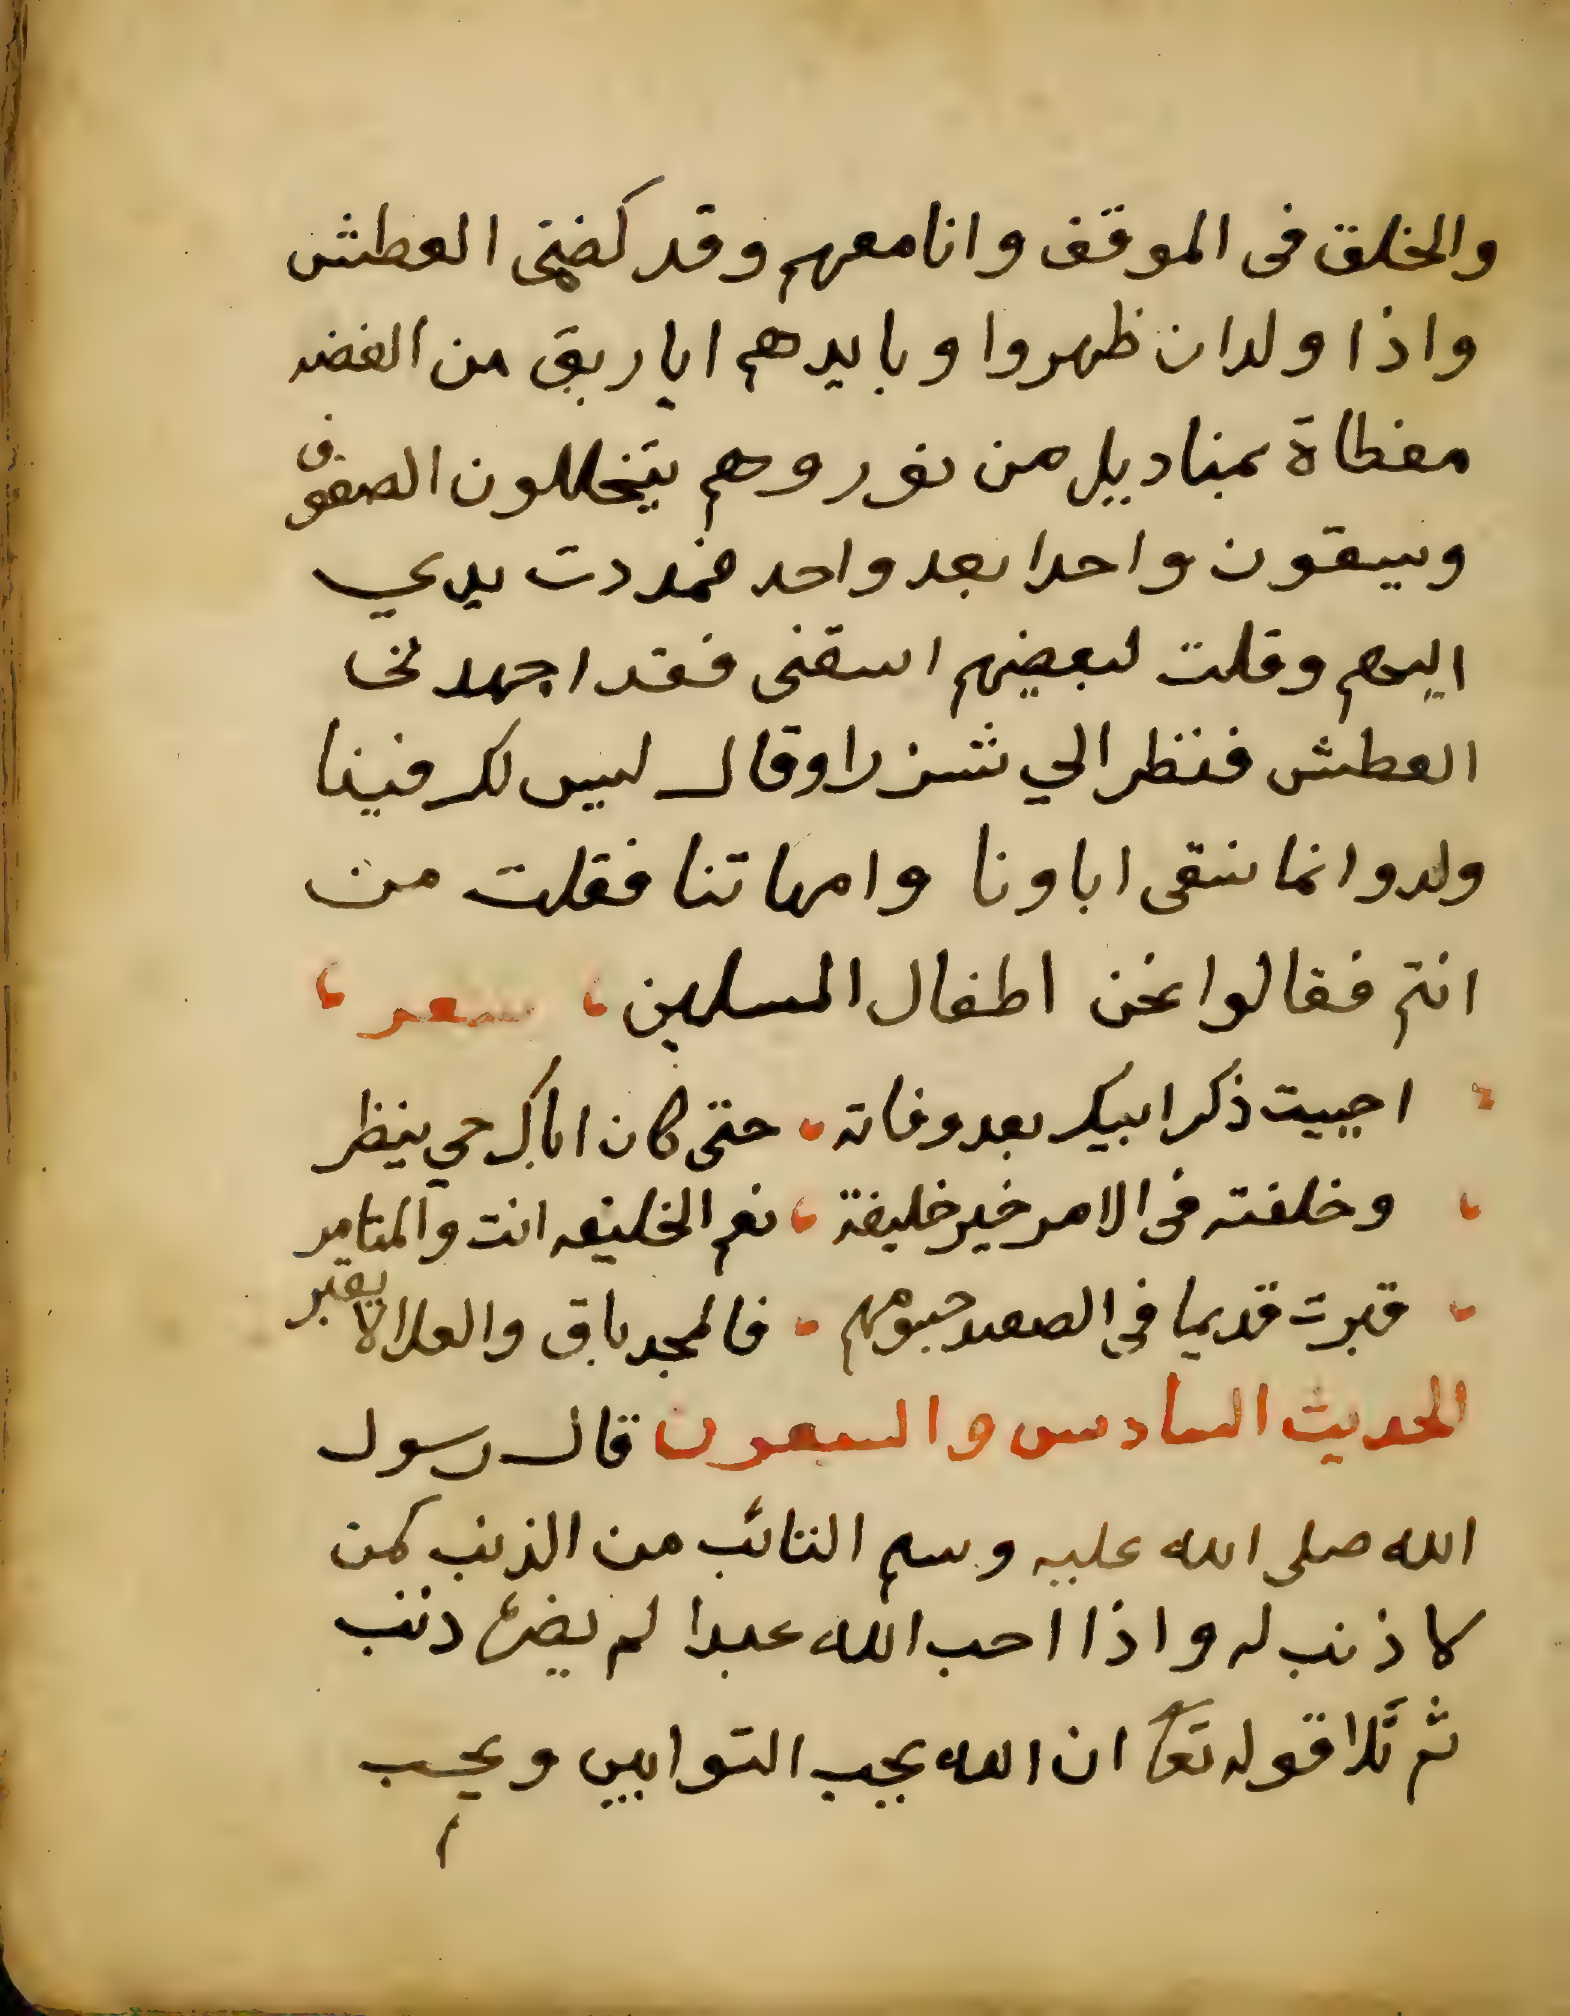 والخلق فى الموقف وانا معهم وقد كضنى العطش
واذا ولدان ظهروا وبايديهم اباريق من الفضه
مغطاة بمناديل من نور وهم يتخللون الصفوف
ويسقون واحدا بعد واحد فمددت يدي
اليهم وقلت لبعضهم اسقنى فقد اجهدنى
العطش فنظر الي شزرا وقال ليس لك فينا
ولد وانما نسقى اباونا وامهاتنا فقلت من
انتم فقالوا نحن اطفال المسلمين شعر
احييت ذكر ابيك بعد وفاته حتى كان اباك حي ينظر
وخلفته فى الامر خير خليفة نعم الخليفه انت والمتامر
قبرت قديما فى الصعيد جسومهم فالمجد باق والعلا لا يقبر
الحديث السادس والسبعون قال رسول
الله صلى الله عليه وسلم التائب من الذنب كمن
لا ذنب له واذا احب الله عبدا لم يضره ذنب
ثم تلا قوله تعا ان الله يحب التوابين ويحب